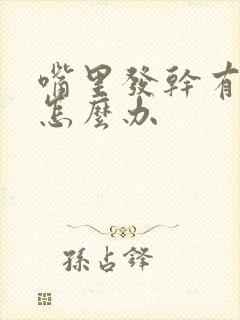 嘴里發幹有
怎麼办
孫占鋒